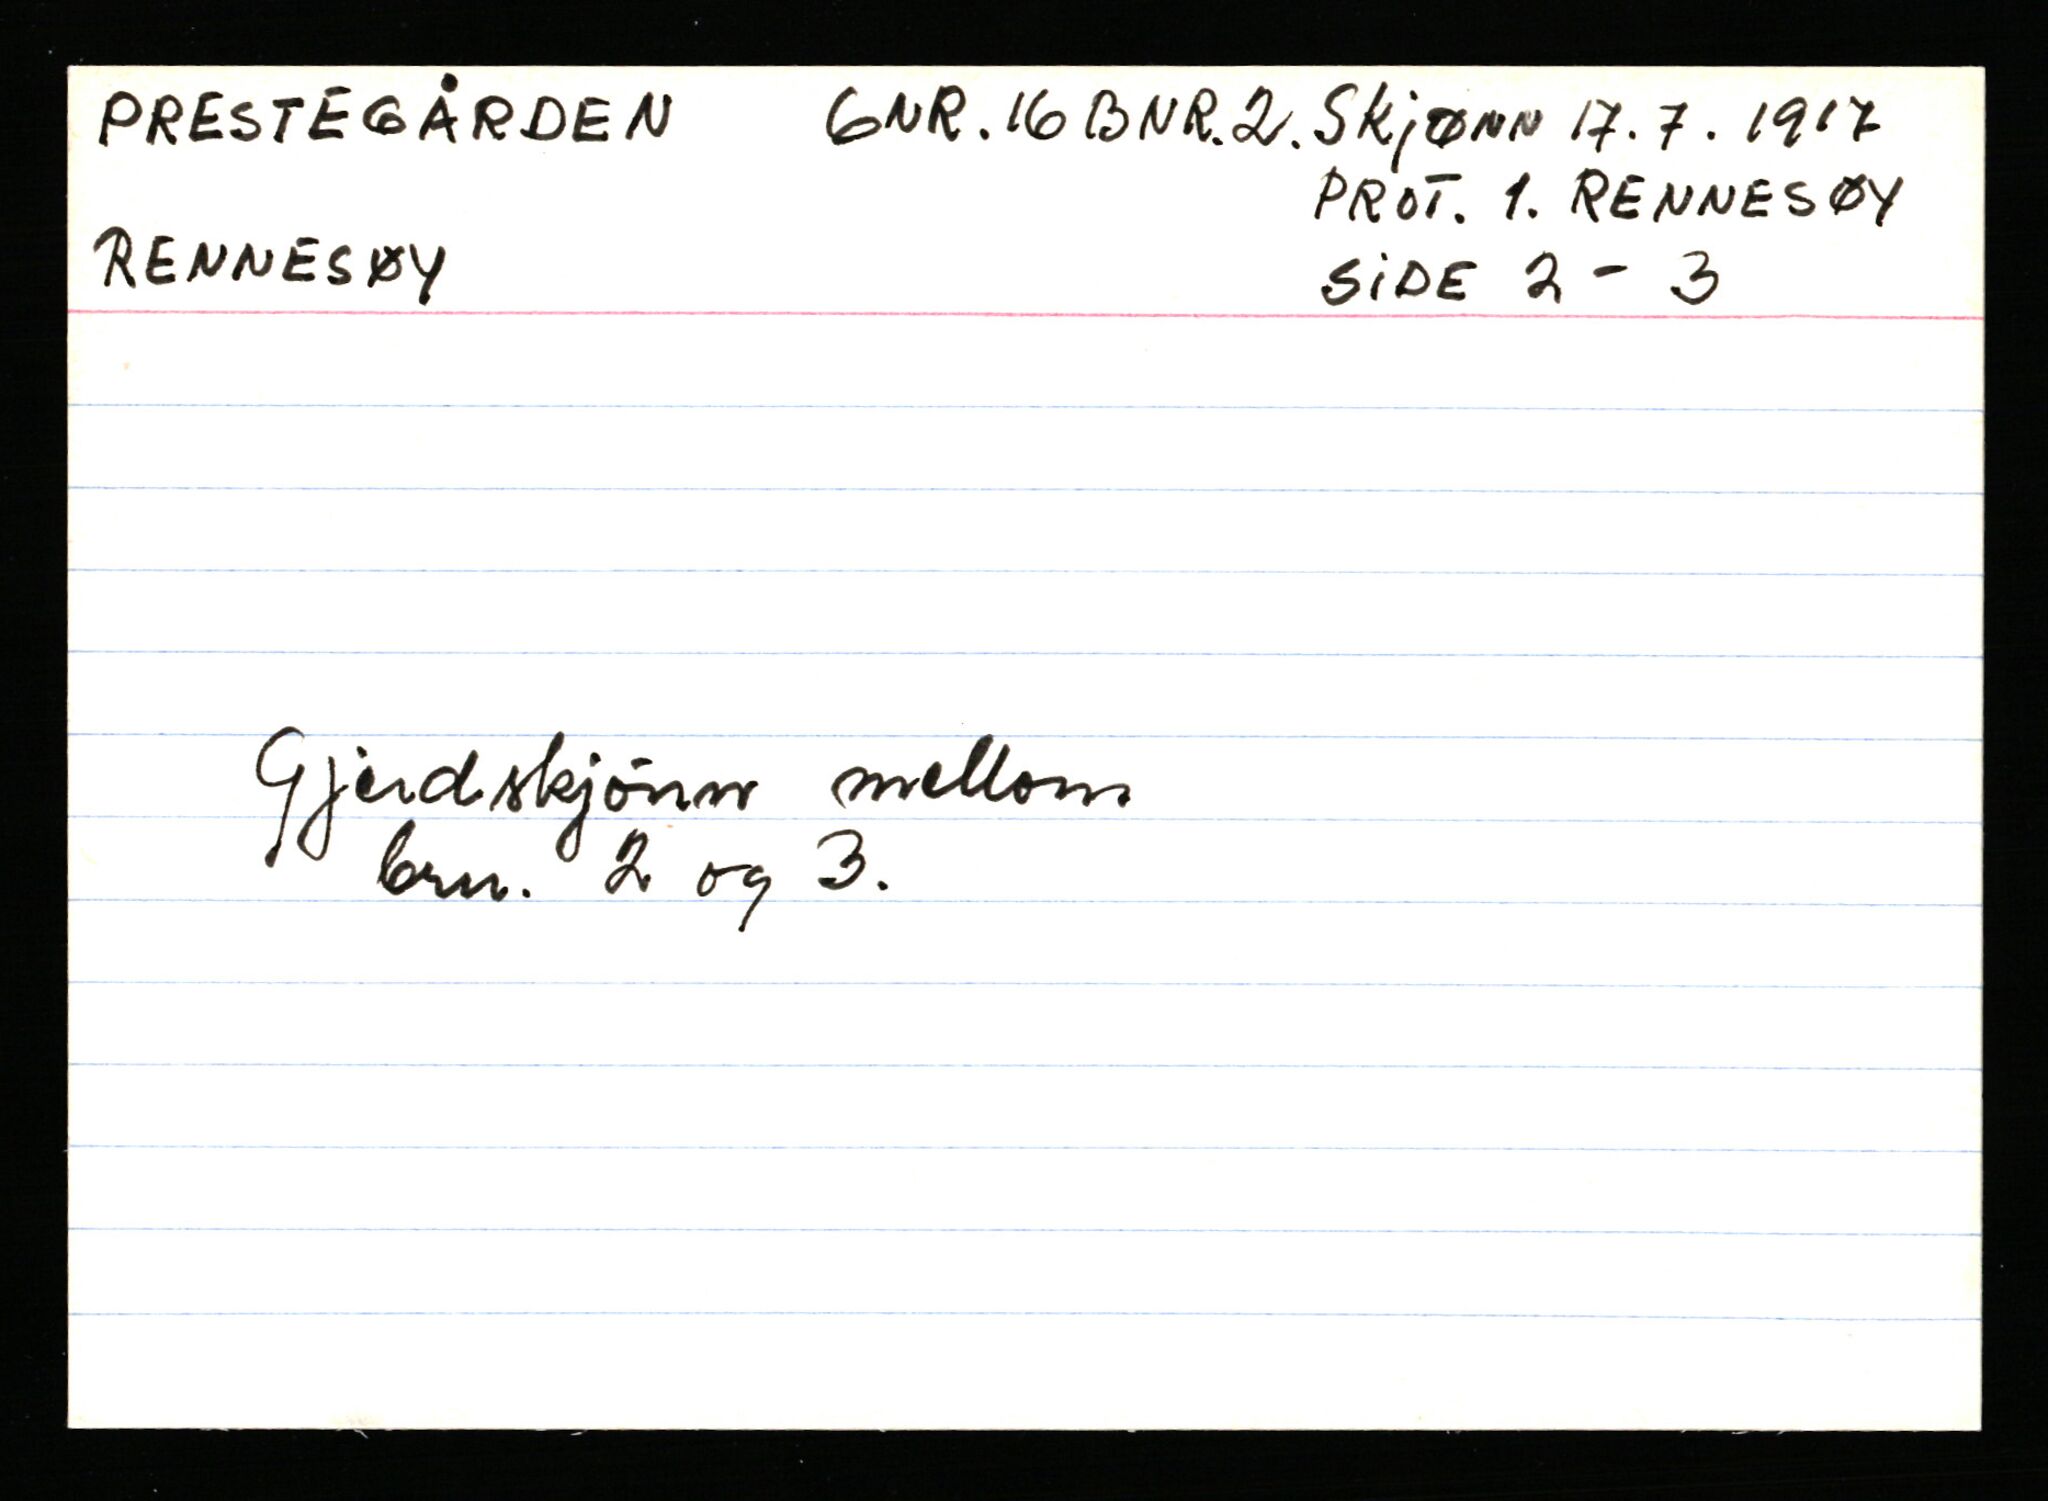 PRESTEGÅRDEN GNR. 16 BNR. 2. Skjønn 17.7.1917
PROT. 1. RENNESØY
RENNESØY
SIDE 2 - 3
Gjerdskjönn mellom
brn. 2 og 3.